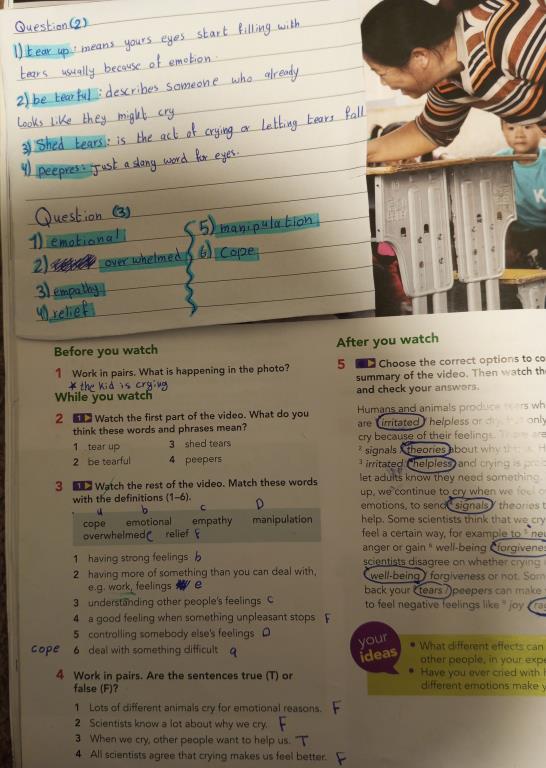 Question (2)
1) tear up: means yours eyes start filling with
tears usually because of emotion.
2) be tearful: describes someone who already
looks like they might cry
3) Shed tears: is the act of crying or letting tears fall
4) peepres: just a slang word for eyes.
Question (3)
1) emotional
2) overwhelmed
3) empathy
4) relief
5) manipulation
6) cope
Before you watch
1 Work in pairs. What is happening in the photo?
* the kid is crying
While you watch
2 1 Watch the first part of the video. What do you
think these words and phrases mean?
1 tear up 3 shed tears
2 be tearful 4 peepers
3 1 Watch the rest of the video. Match these words
with the definitions (1–6).
b c D
cope emotional empathy manipulation
overwhelmed e relief F
1 having strong feelings b
2 having more of something than you can deal with,
e.g. work, feelings e
3 understanding other people's feelings c
4 a good feeling when something unpleasant stops F
5 controlling somebody else's feelings D
cope 6 deal with something difficult a
4 Work in pairs. Are the sentences true (T) or
false (F)?
1 Lots of different animals cry for emotional reasons. F
2 Scientists know a lot about why we cry. F
3 When we cry, other people want to help us. T
4 All scientists agree that crying makes us feel better. F
After you watch
5 Choose the correct options to co
summary of the video. Then watch th
and check your answers.
Humans and animals produce tears wh
are irritated / helpless or dry, but only
cry because of their feelings. There are
2 signals / theories about why
3 irritated / helpless and crying is
let adults know they need something.
up, we continue to cry when we feel
emotions, to send signals / theories
help. Some scientists think that we cry
feel a certain way, for example to 5
anger or gain 6 well-being / forgivenes
scientists disagree on whether crying
well-being / forgiveness or not. Som
back your tears / peepers can make
to feel negative feelings like 9 joy / ra
your
ideas
• What different effects can
other people, in your expe
• Have you ever cried with
different emotions make y
K